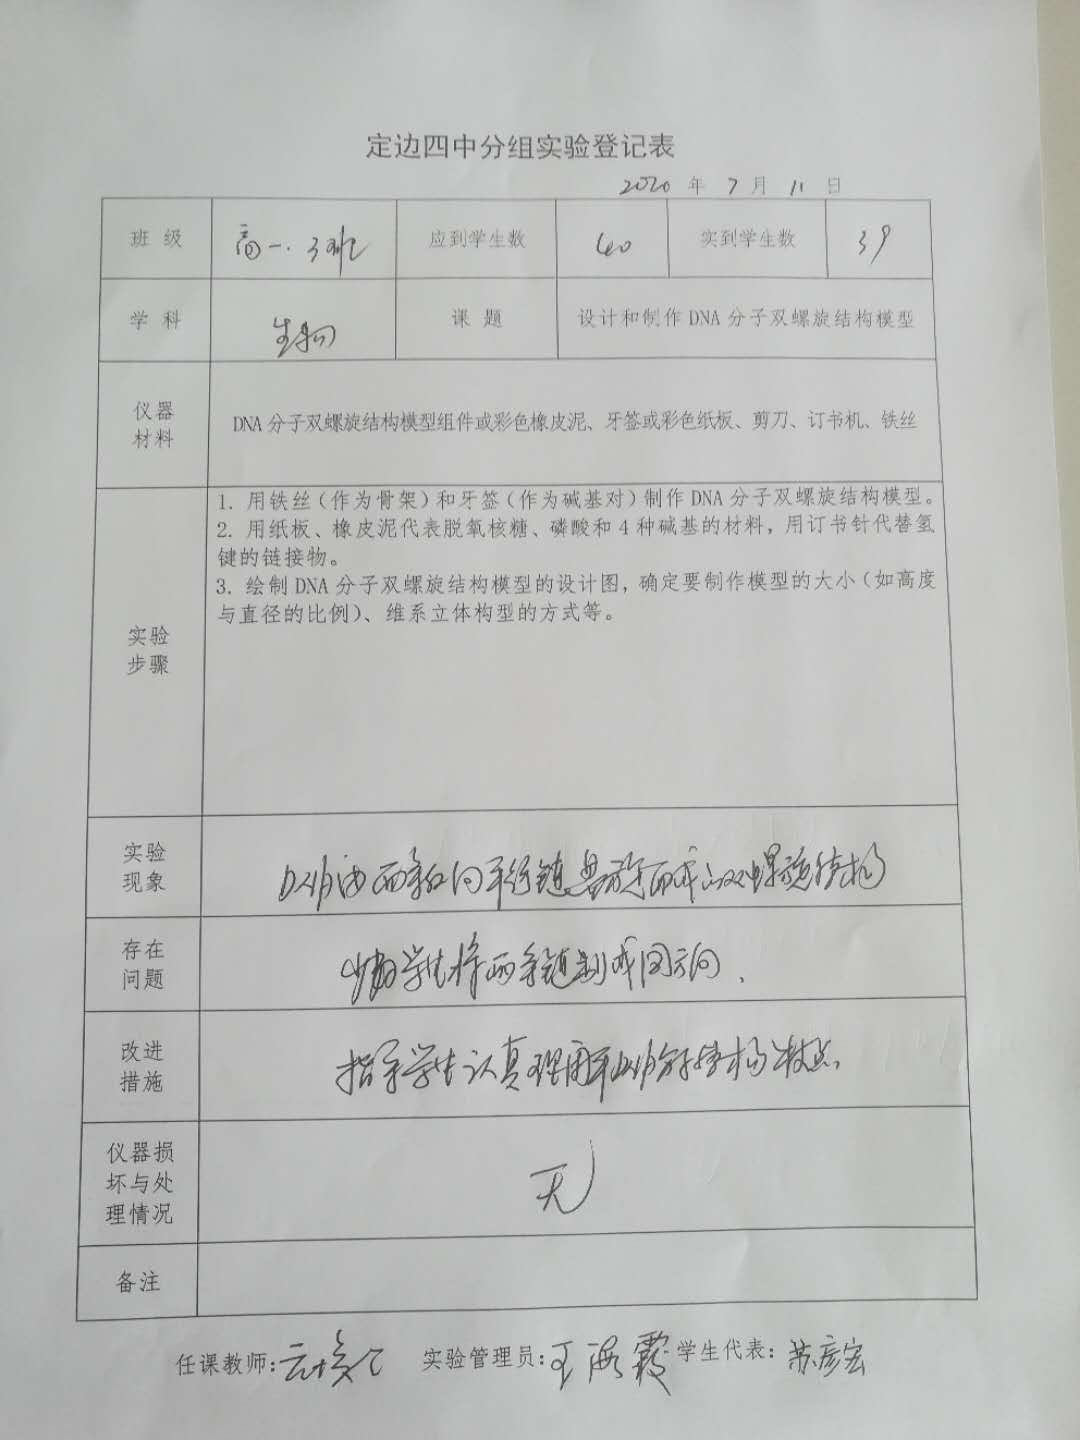 定边四中分组实验登记表
2020 年 7 月 11 日
班 级 高一.3班 应到学生数 40 实到学生数 39
学 科 生物 课 题 设计和制作DNA分子双螺旋结构模型
仪器
材料
DNA分子双螺旋结构模型组件或彩色橡皮泥、牙签或彩色纸板、剪刀、订书机、铁丝
实验
步骤
1. 用铁丝(作为骨架)和牙签(作为碱基对)制作DNA分子双螺旋结构模型。
2. 用纸板、橡皮泥代表脱氧核糖、磷酸和4种碱基的材料,用订书针代替氢
键的链接物。
3. 绘制DNA分子双螺旋结构模型的设计图,确定要制作模型的大小(如高度
与直径的比例)、维系立体构型的方式等。
实验
现象
DNA由两条反向平行链盘旋而成双螺旋结构
存在
问题
少数学生将两条链制成同方向.
改进
措施
指导学生认真理解DNA分子结构特点.
仪器损
坏与处
理情况
无
备注
任课教师: 实验管理员:王海霞 学生代表:苏彦宏